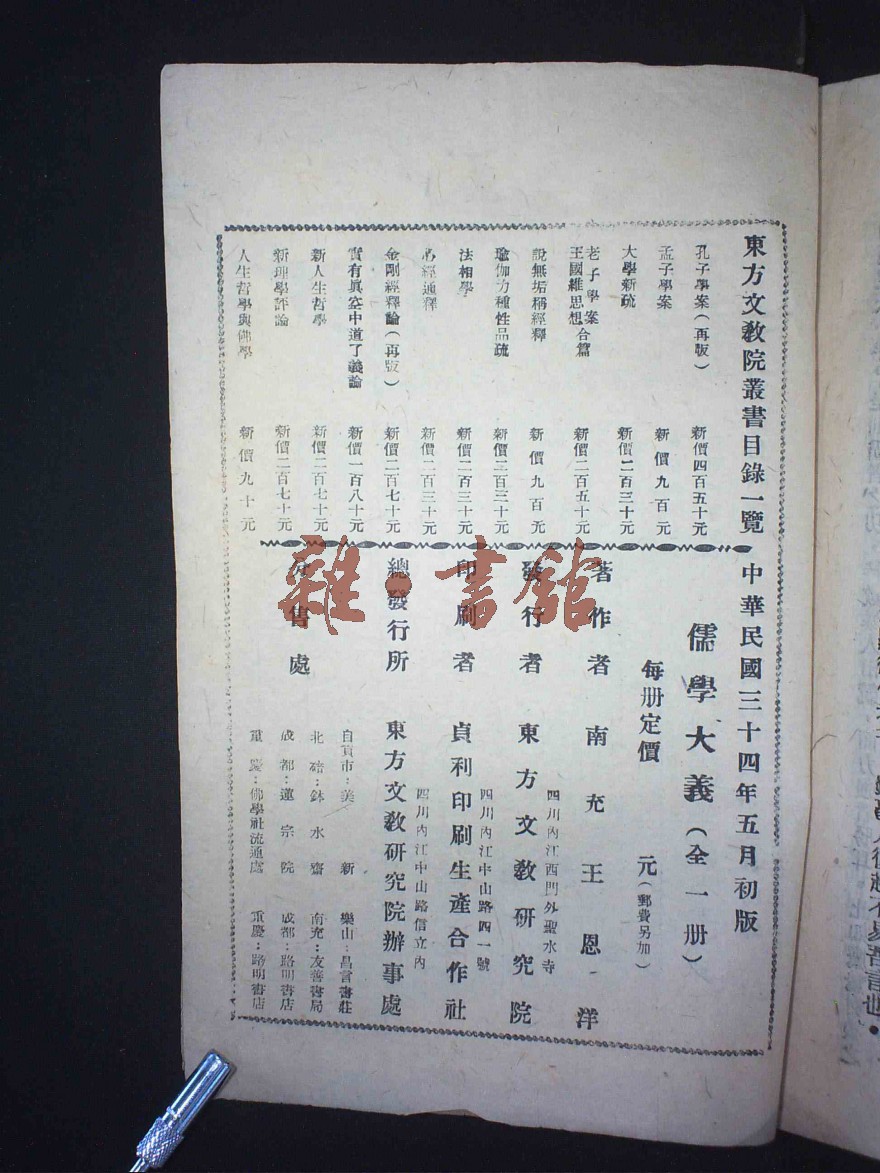 東方文敎院叢書目錄一覽
孔子學案(再版) 新價四百五十元
孟子學案 新價九百元
大學新疏 新價二百三十元
老子學案
王國維思想合篇 新價二百五十元
說無垢稱經釋 新價九百元
瑜伽力種性品疏 新價三百三十元
法相學 新價二百三十元
心經通釋 新價二百三十元
金剛經釋論(再版) 新價二百七十元
實有眞空中道了義論 新價一百八十元
新人生哲學 新價二百七十元
新理學評論 新價二百七十元
人生哲學與佛學 新價九十元
中華民國三十四年五月初版
儒學大義(全一册)
每册定價 元(郵費另加)
著作者 南充王恩洋
四川內江西門外聖水寺
發行者 東方文敎研究院
四川內江中山路四一號
印刷者 貞利印刷生產合作社
四川內江中山路信立內
總發行所 東方文敎研究院辦事處
分售處
自貢市:美新 樂山:昌言書莊
北碚:鉢水齋 南充:友善書局
成都:蓮宗院 成都:路明書店
重慶:佛學社流通處 重慶:路明書店
雜·書館